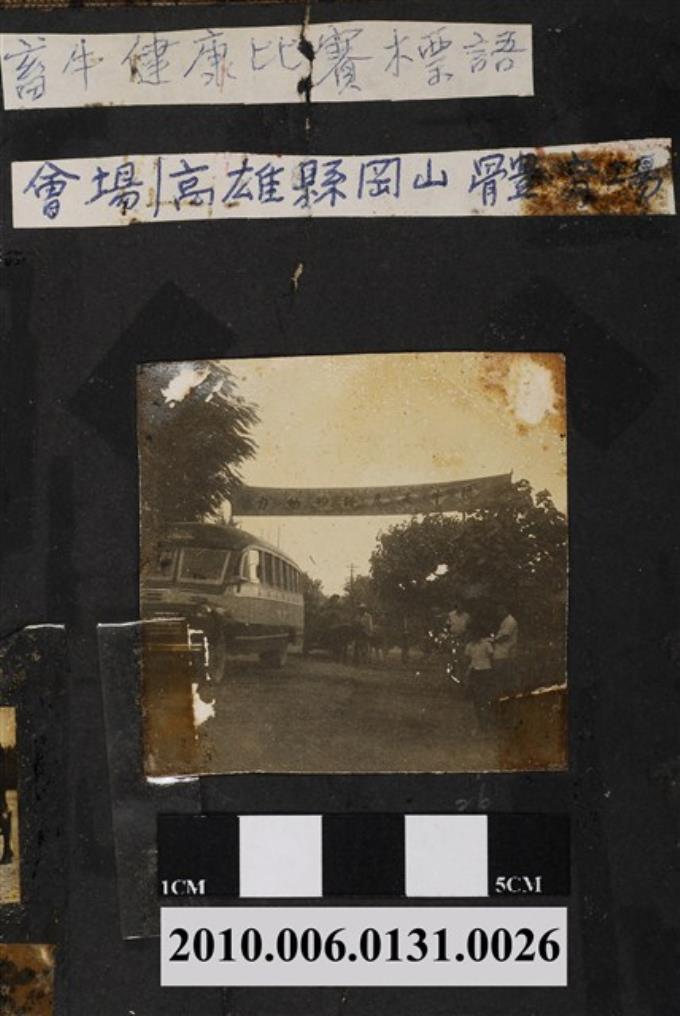 畜牛健康比賽標語
會場|高雄縣岡山體育場
1CM 5CM
2010.006.0131.0026